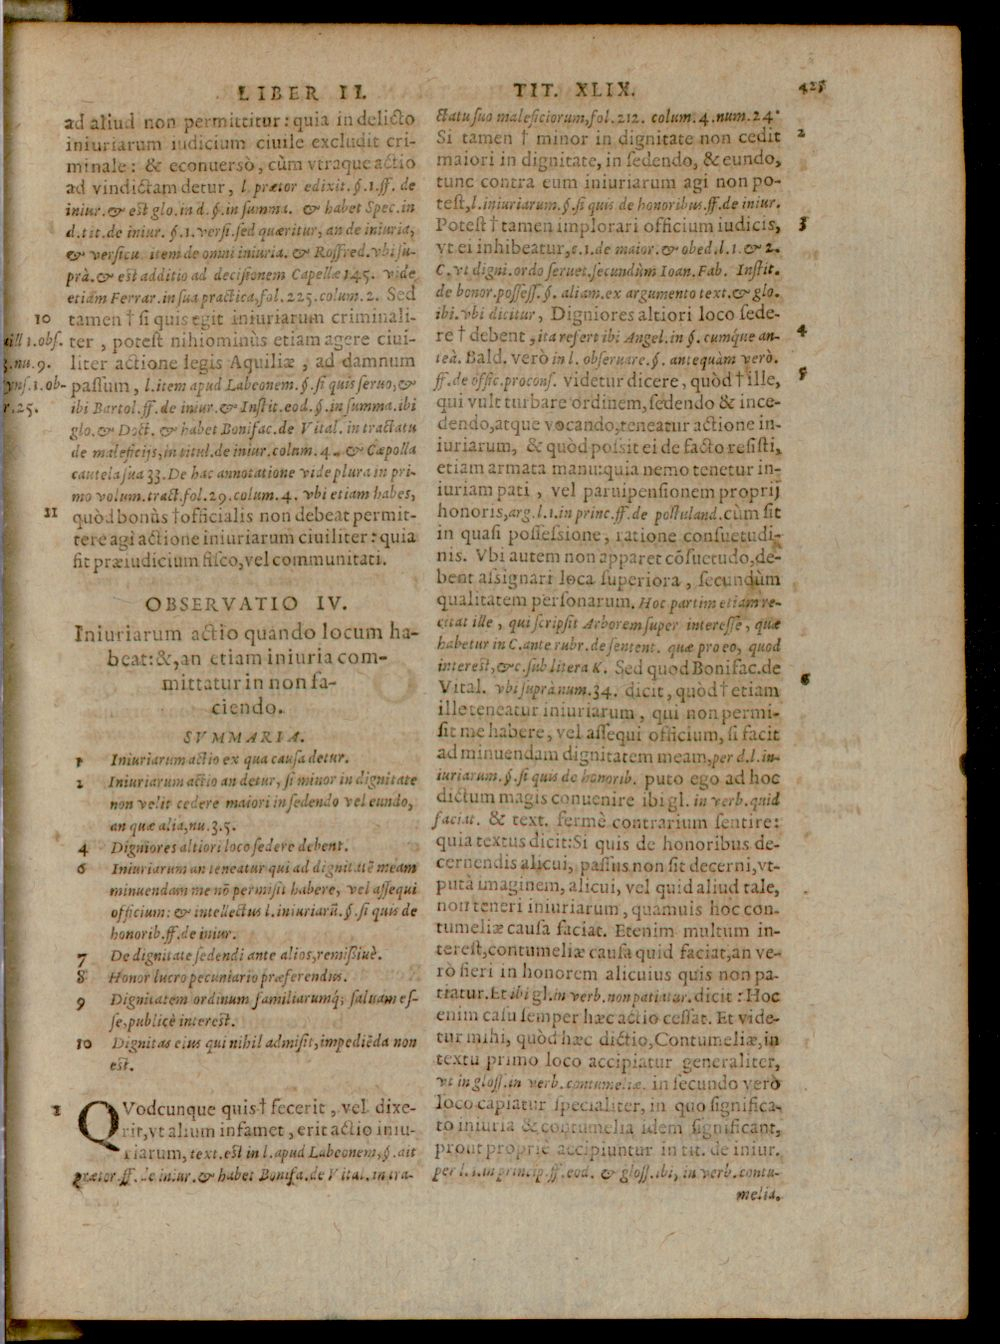 LIBER II. TIT. XLIX. 425
ad aliud non permittitur: quia in delicto
iniuriarum iudicium ciuile excludit cri-
minale: & econuersò, cùm vtraque actio
ad vindictam detur, l. prætor edixit. §. 1. ff. de
iniur. & est glo. in d. §. in summa. & habet Spec. in
d. tit. de iniur. §. 1. versi. sed quæritur, an de iniuria,
& versicu. item de omni iniuria. & Roffred. vbi su-
prà. & est additio ad decisionem Capellæ 145. vide
etiam Ferrar. in sua practica, fol. 225. colum. 2. Sed
10 tamen † si quis egit iniuriarum criminali-
ill 1. obs. ter, potest nihiominùs etiam agere ciui-
nu. 9. liter actione legis Aquiliæ, ad damnum
ynf. 1. ob- passum, l. item apud Labeonem. §. si quis seruo, &
r. 25. ibi Bartol. ff. de iniur. & Instit. eod. §. in summa. ibi
glo. & Doct. & habet Bonifac. de Vital. in tractatu
de maleficijs, in titul. de iniur. colum. 4. & Capolla
cautela sua 33. De hac annotatione vide plura in pri-
mo volum. tract. fol. 29. colum. 4. vbi etiam habes,
11 quòd bonùs † officialis non debeat permit-
tere agi actione iniuriarum ciuiliter: quia
fit præiudicium fisco, vel communitati.
OBSERVATIO IV.
Iniuriarum actio quando locum ha-
beat: &, an etiam iniuria com-
mittatur in non fa-
ciendo.
SVMMARIA.
1 Iniuriarum actio ex qua causa detur.
2 Iniuriarum actio an detur, si minor in dignitate
non velit cedere maiori in sedendo vel eundo,
an quæ alia, nu. 3. 5.
4 Digniores altiori loco sedere debent.
6 Iniuriarum an teneatur qui ad dignitatẽ meam
minuendam me nõ permisit habere, vel assequi
officium: & intellectus l. iniuriarũ. §. si quis de
honorib. ff. de iniur.
7 De dignitate sedendi ante alios, remissiuè.
8 Honor lucro pecuniario præferendus.
9 Dignitatem ordinum familiarumq; saluam es-
se, publicè interest.
10 Dignitas eius qui nihil admisit, impediẽda non
est.
1 QVodcunque quis † fecerit, vel dixe-
rit, vt alium infamet, erit actio iniu-
riarum, text. est in l. apud Labeonem, §. ait
prætor. ff. de iniur. & habet Bonifa. de Vital. in tra-
ctatu suo maleficiorum, fol. 212. colum. 4. num. 24.
Si tamen † minor in dignitate non cedit 2
maiori in dignitate, in sedendo, & eundo,
tunc contra eum iniuriarum agi non po-
test, l. iniuriarum. §. si quis de honoribus. ff. de iniur.
Potest † tamen implorari officium iudicis, 3
vt ei inhibeatur, c. 1. de maior. & obed. l. 1. & 2.
C. vt digni. ordo seruet. secundùm Ioan. Fab. Instit.
de bonor. possess. §. aliam. ex argumento text. & glo.
ibi. vbi dicitur, Digniores altiori loco sede-
re † debent, ita refert ibi Angel. in §. cumque an- 4
teà. Bald. verò in l. obseruare. §. antequàm verò.
ff. de offic. proconf. videtur dicere, quòd † ille, 5
qui vult turbare ordinem, sedendo & ince-
dendo, atque vocando, teneatur actione in-
iuriarum, & quòd possit ei de facto resisti,
etiam armata manu: quia nemo tenetur in-
iuriam pati, vel paruipensionem proprij
honoris, arg. l. 1. in princ. ff. de postuland. cùm sit
in quasi possessione, ratione consuetudi-
nis. Vbi autem non apparet cõsuetudo, de-
bent assignari loca superiora, secundùm
qualitatem personarum. Hoc partim etiam re-
citat ille, qui scripsit Arborem super interesse, quæ
habetur in C. ante rubr. de sentent. quæ pro eo, quod
interest, &c. sub litera K. Sed quod Bonifac. de
Vital. vbi suprà num. 34. dicit, quòd † etiam 6
ille teneatur iniuriarum, qui non permi-
sit me habere, vel assequi officium, si facit
ad minuendam dignitatem meam, per d. l. in-
iuriarum. §. si quis de honorib. puto ego ad hoc
dictum magis conuenire ibi gl. in verb. quid
faciat. & text. fermè contrarium sentire:
quia textus dicit: Si quis de honoribus de-
cernendis alicui, passus non sit decerni, vt-
putà imaginem, alicui, vel quid aliud tale,
non teneri iniuriarum, quamuis hoc con-
tumeliæ causa faciat. Etenim multum in-
terest, contumeliæ causa quid faciat, an ve-
rò fieri in honorem alicuius quis non pa-
tiatur. Et ibi gl. in verb. non patiatur. dicit: Hoc
enim casu semper hæc actio cessat. Et vide-
tur mihi, quòd hæc dictio, Contumeliæ, in
textu primo loco accipiatur generaliter,
vt in gloss. in verb. contumeliæ. in secundo verò
loco capiatur specialiter, in quo significa-
to iniuria & contumelia idem significant,
prout propriè accipiuntur in tit. de iniur.
per l. 1. in princip. ff. eod. & gloss. ibi, in verb. contu-
melia.